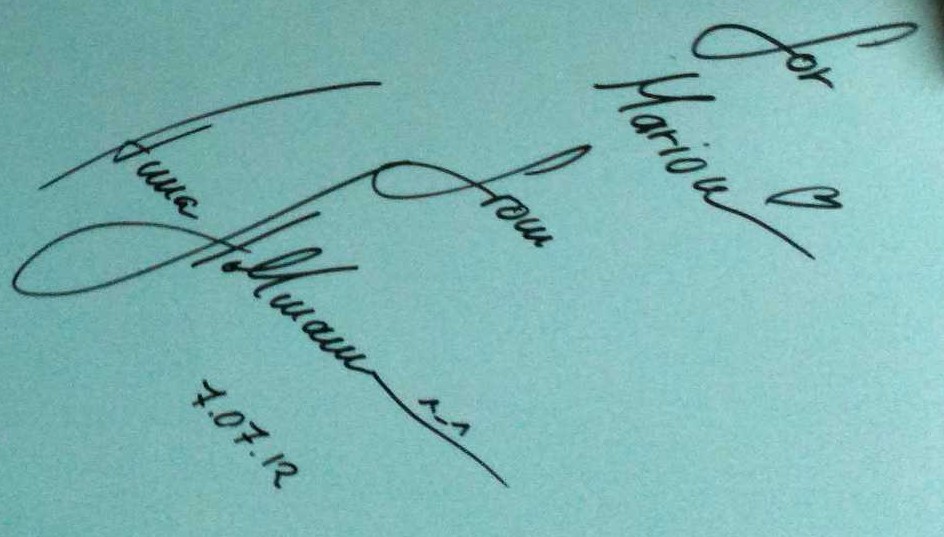 for
Marion
from
Anna
Hollmann
^_^
7.07.12